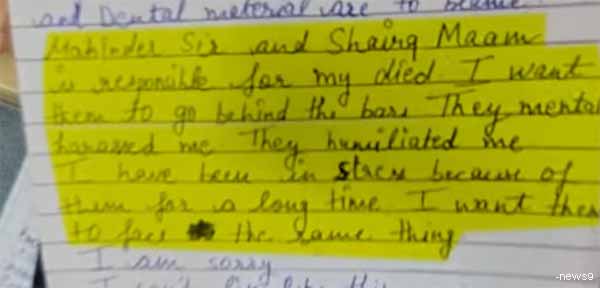 and Dental material are to blame.
Mahinder Sir and Shairg Maam
is responsible for my died I want
them to go behind the bars They mental
harassed me They humiliated me
I have been in stress because of
them for a long time I want them
to face the same thing
I am sorry
I can't live like this
-news9